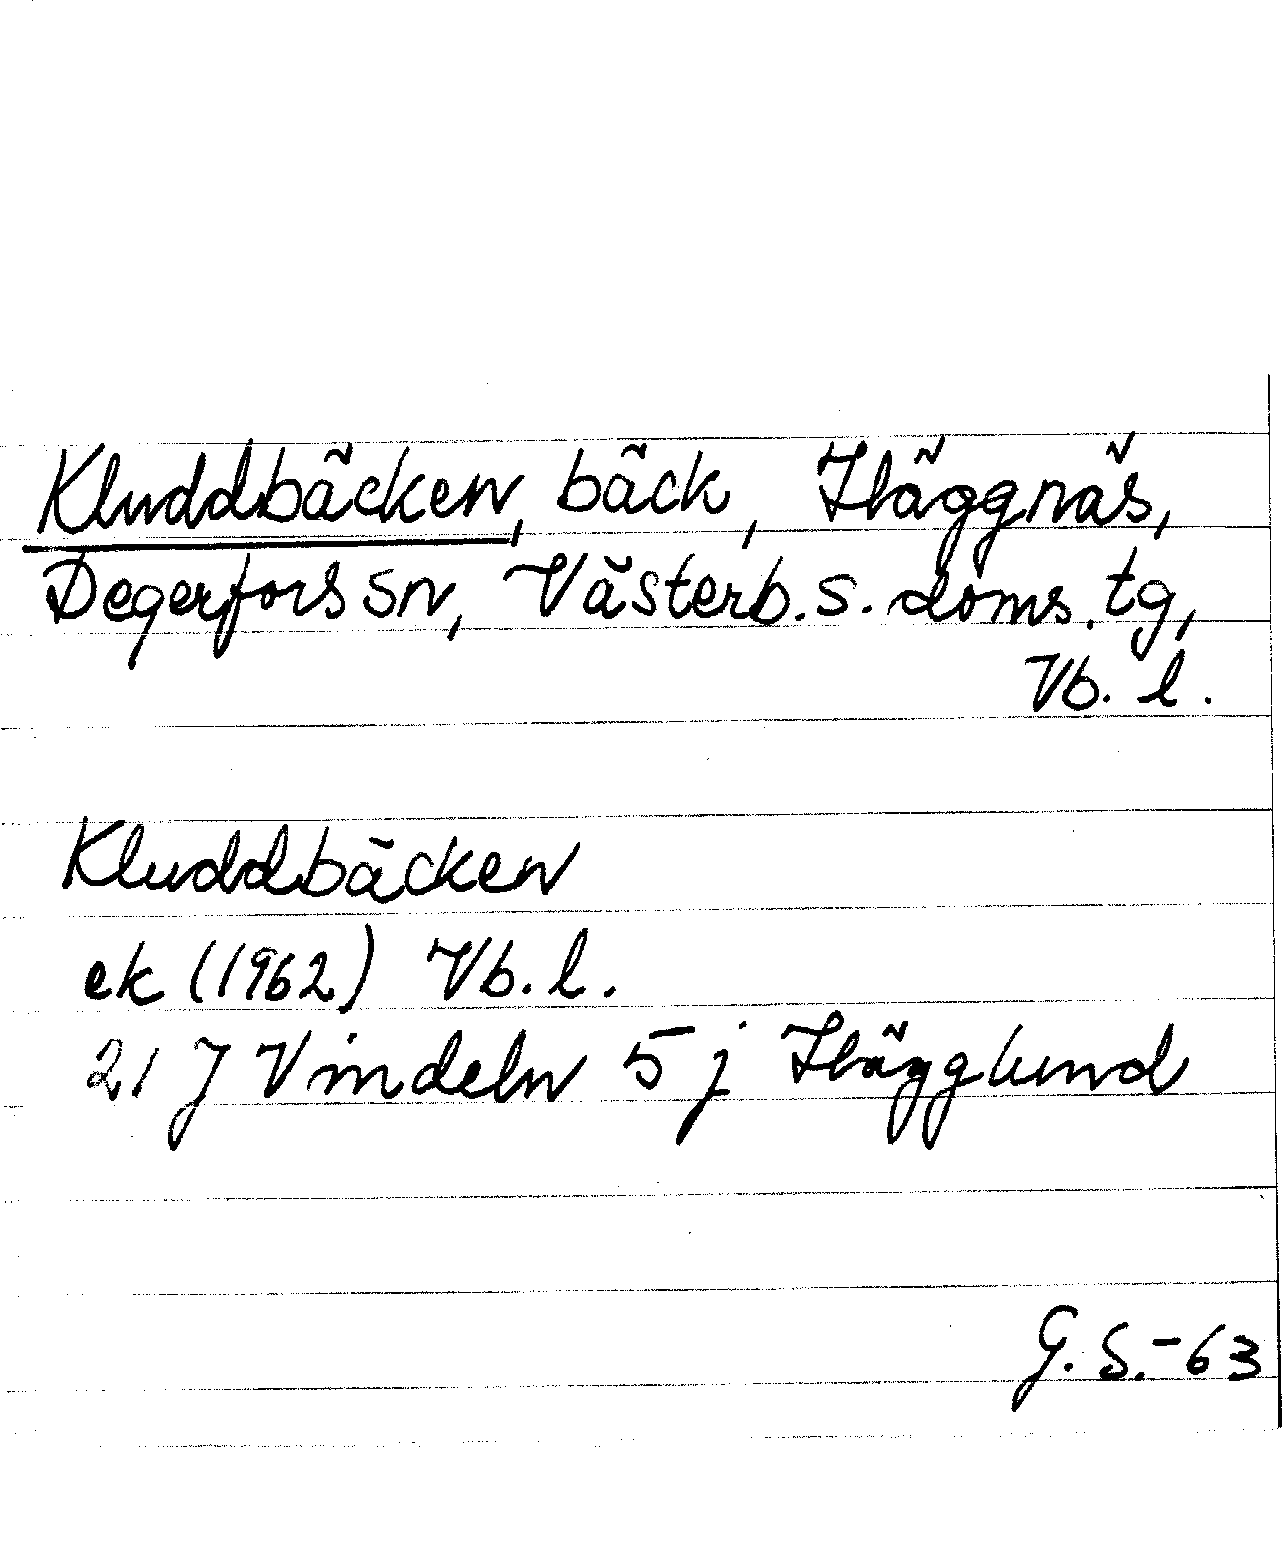 Kluddbäcken, bäck, Häggnäs,
Degerfors sn, Västerb. s. doms. tg,
Vb. l.
Kluddbäcken
ek (1962) Vb. l.
21 J Vindeln 5 j Hägglund
G. S. - 63